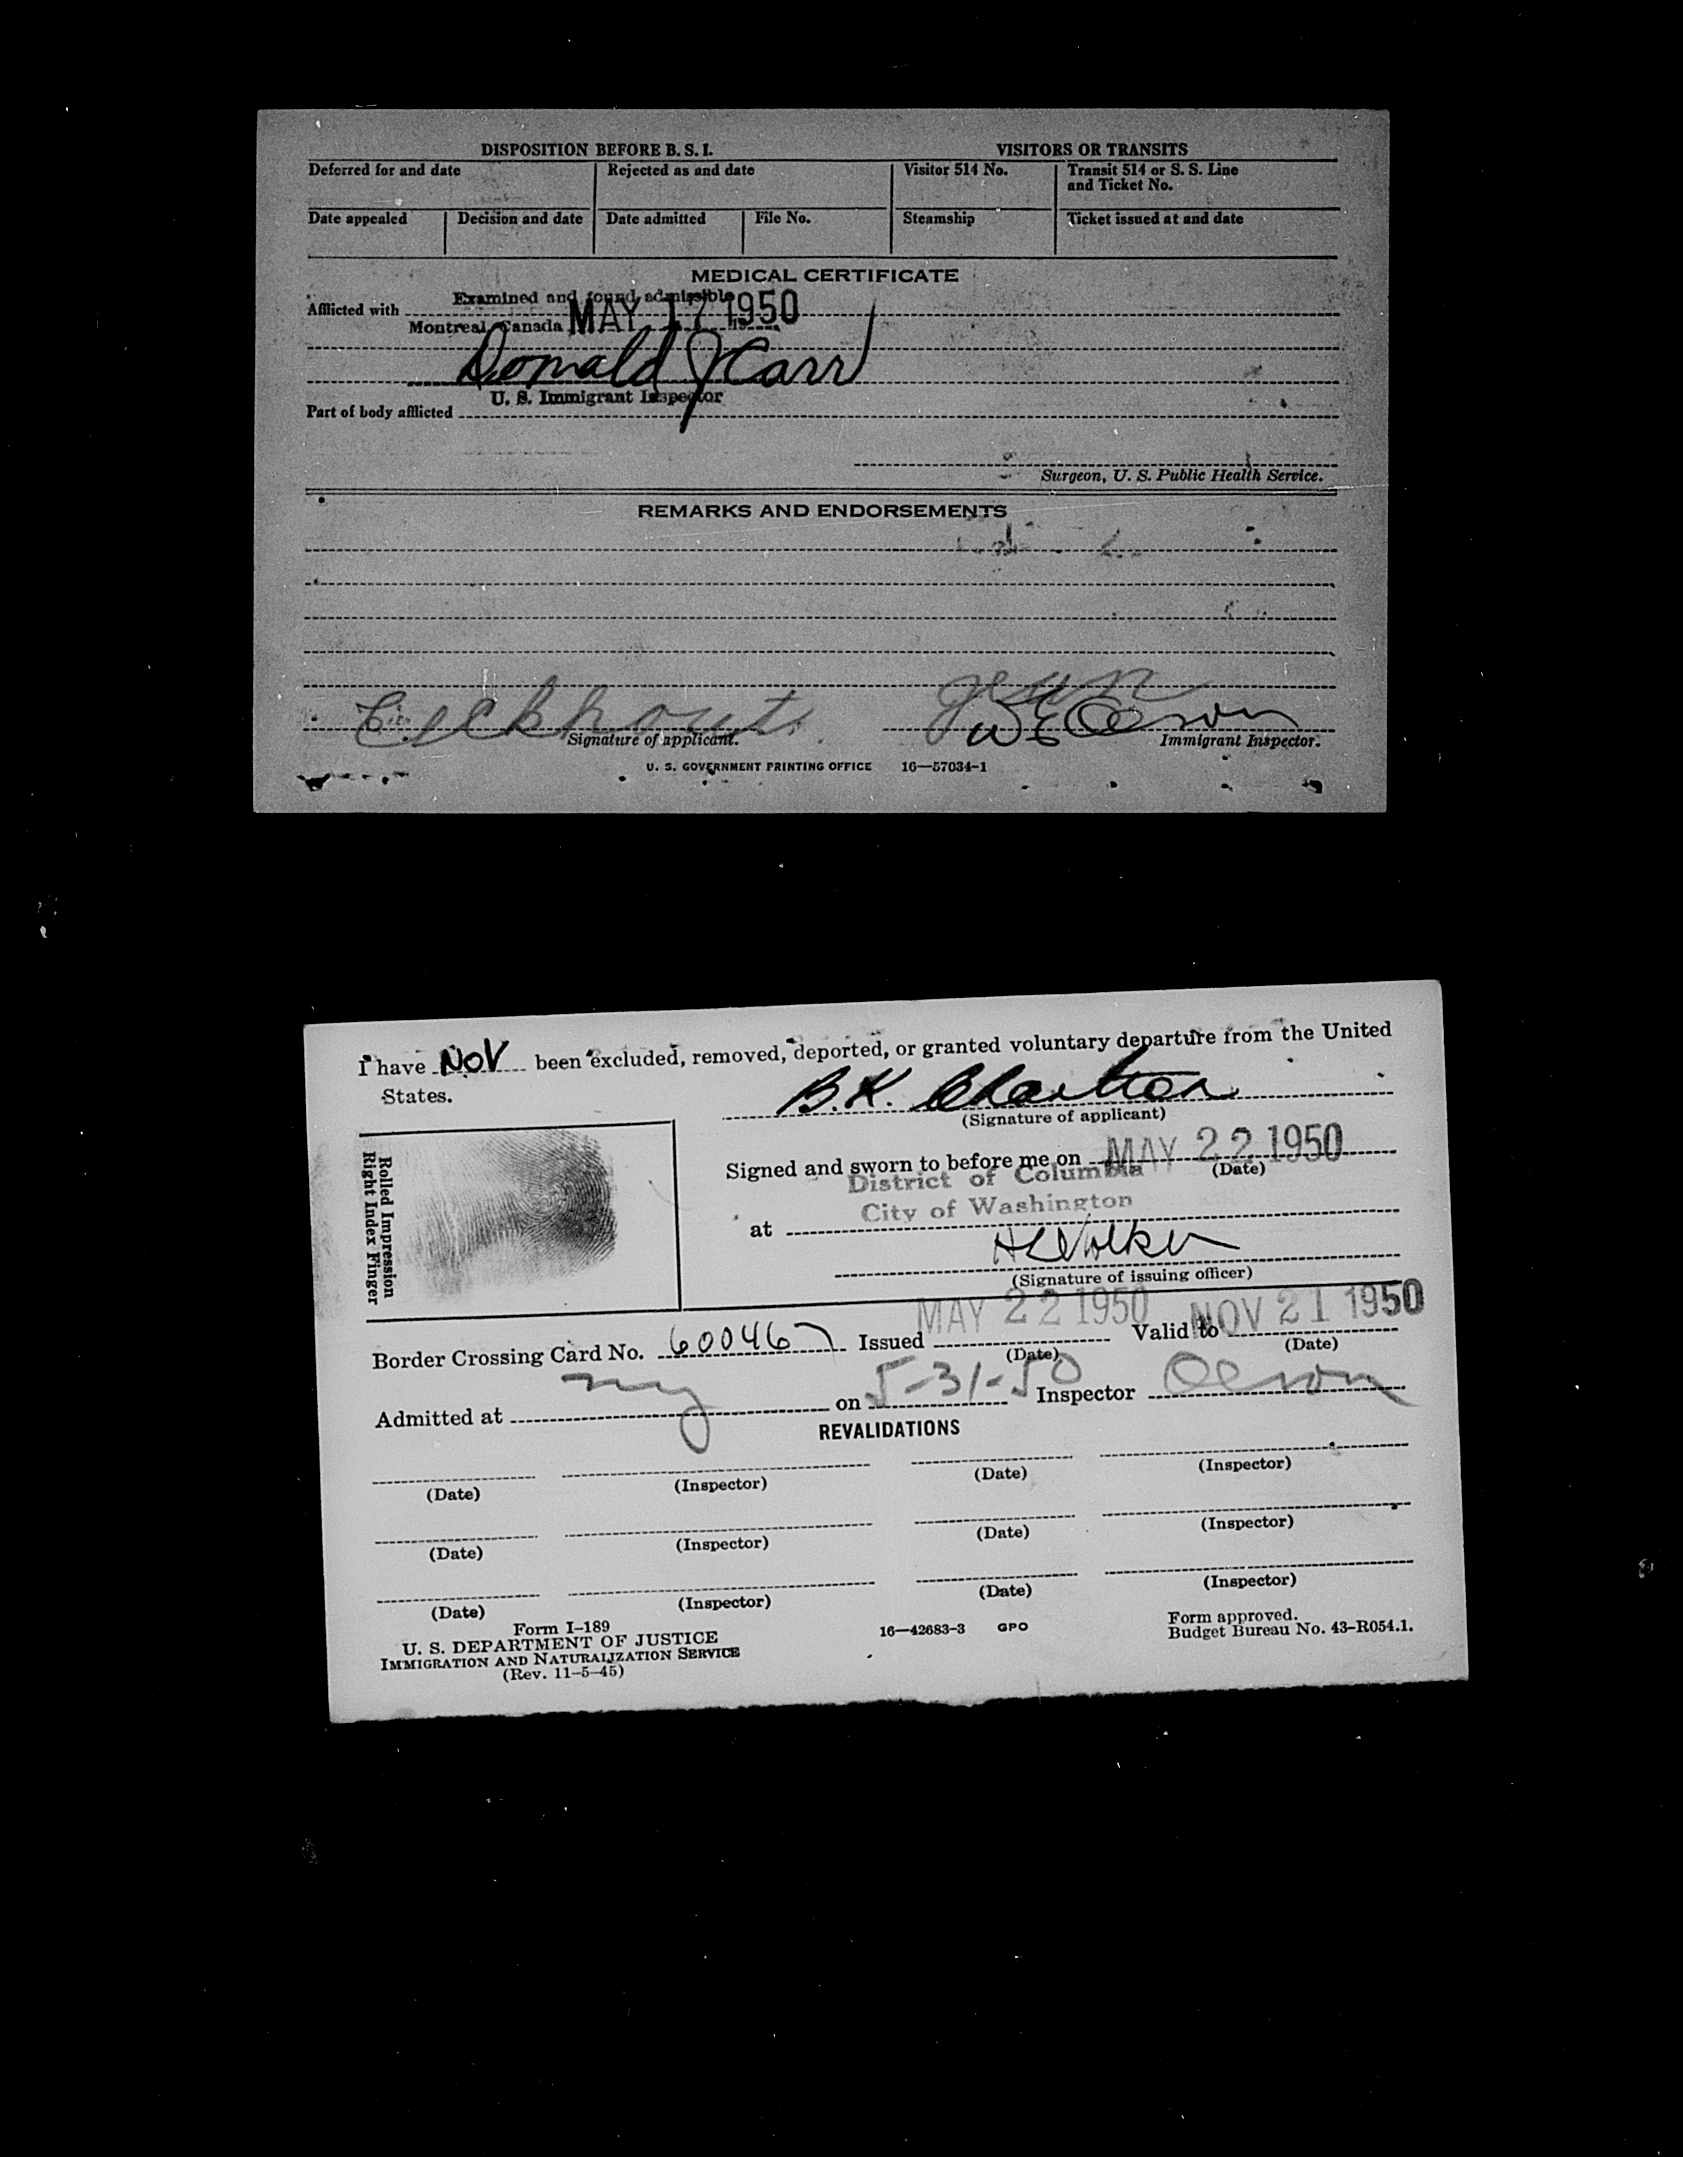 DISPOSITION BEFORE B. S. I. VISITORS OR TRANSITS
Deferred for and date Rejected as and date Visitor 514 No. Transit 514 or S. S. Line
and Ticket No.
Date appealed Decision and date Date admitted File No. Steamship Ticket issued at and date
MEDICAL CERTIFICATE
Examined and found admissible
Afflicted with
Montreal, Canada MAY 17 1950
Donald J Carr
U. S. Immigrant Inspector
Part of body afflicted
Surgeon, U. S. Public Health Service.
REMARKS AND ENDORSEMENTS
Eeckhout
Signature of applicant. Immigrant Inspector.
U. S. GOVERNMENT PRINTING OFFICE 16—57034-1
I have NOV been excluded, removed, deported, or granted voluntary departure from the United
States.
B.K.
(Signature of applicant)
Signed and sworn to before me on MAY 22 1950
(Date)
District of Columbia
at City of Washington
(Signature of issuing officer)
Rolled Impression
Right Index Finger
Border Crossing Card No. 600467 Issued MAY 22 1950 Valid to NOV 21 1950
(Date) (Date)
Admitted at ny on 5-31-50 Inspector Olson
REVALIDATIONS
(Date) (Inspector) (Date) (Inspector)
(Date) (Inspector) (Date) (Inspector)
(Date) (Inspector) (Date) (Inspector)
Form I-189
U. S. DEPARTMENT OF JUSTICE
IMMIGRATION AND NATURALIZATION SERVICE
(Rev. 11-5-45)
16—42683-3 GPO
Form approved.
Budget Bureau No. 43-R054.1.